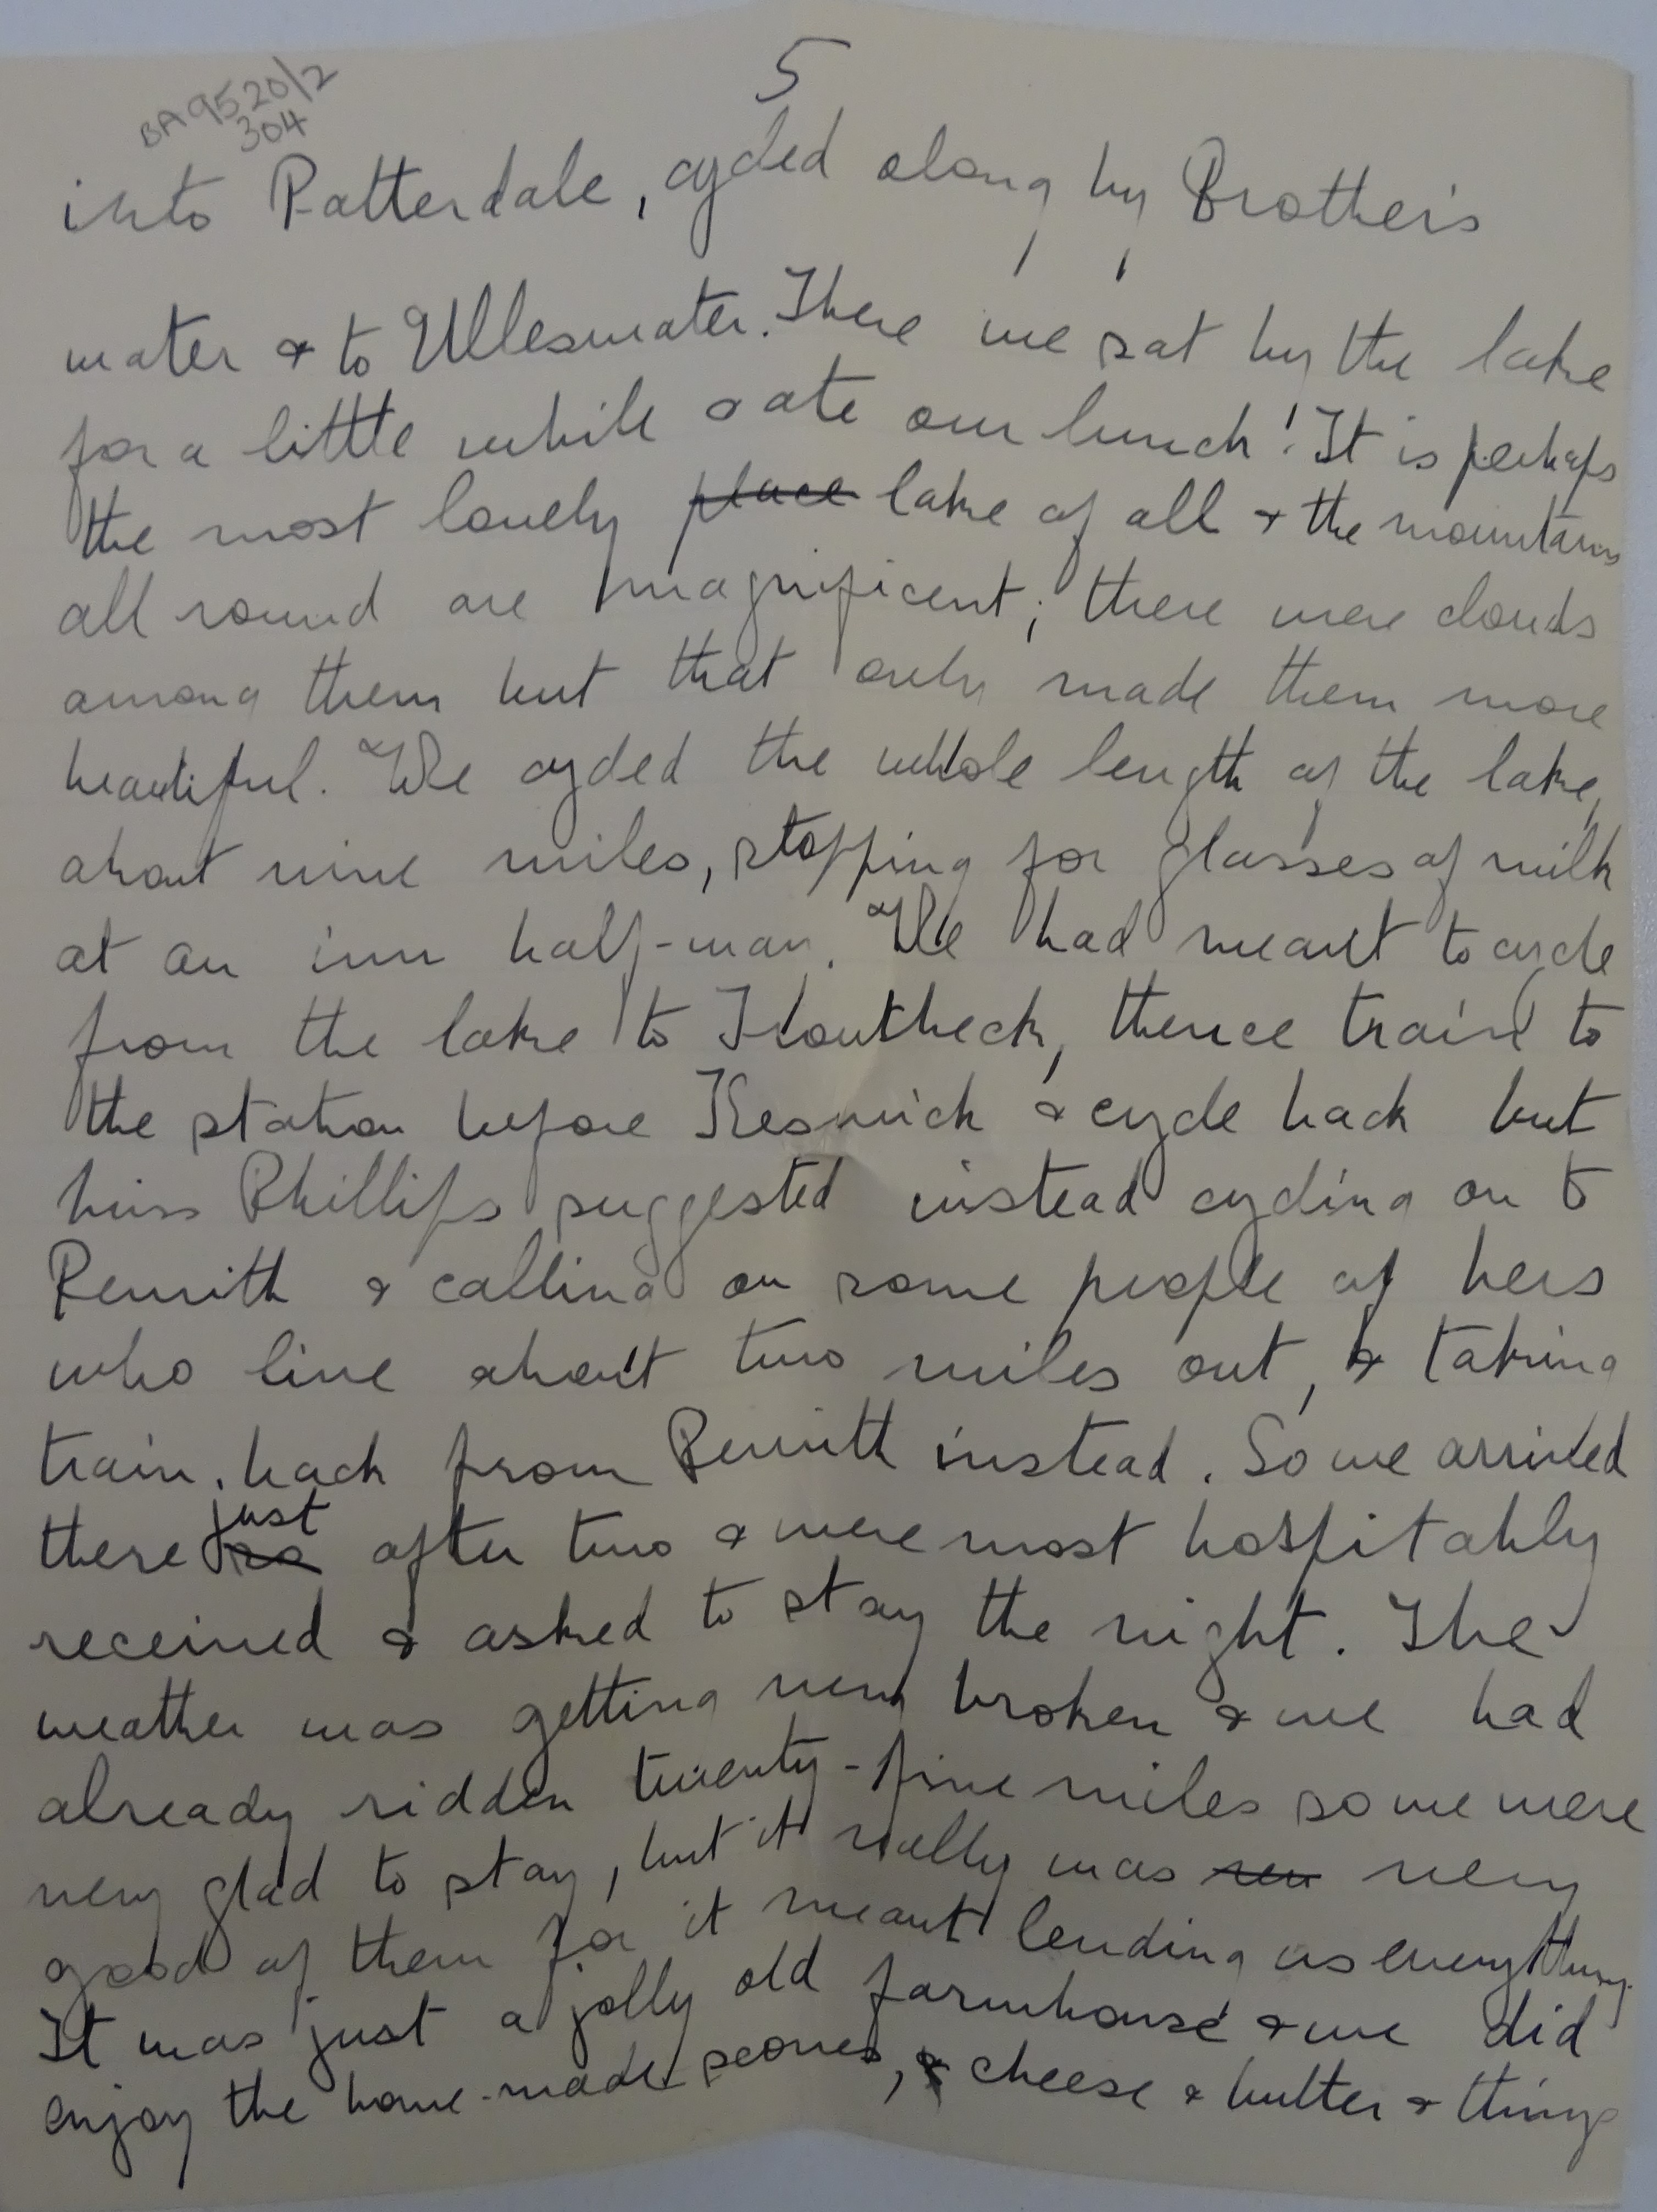 5
BA9520/2
304
into Patterdale, cycled along by Brother's
water & to Ulleswater. There we sat by the lake
for a little while & ate our lunch! It is perhaps
the most lovely place lake of all & the mountains
all round are magnificent; there were clouds
among them but that only made them more
beautiful. We cycled the whole length of the lake,
about nine miles, stopping for glasses of milk
at an inn half-way. We had meant to cycle
from the lake to Troutbeck, thence train to
the station before Keswick & cycle back but
Miss Phillips suggested instead cycling on to
Penrith & calling on some people of hers
who live about two miles out, & taking
train back from Penrith instead. So we arrived
there just after two & were most hospitably
received & asked to stay the night. The
weather was getting very broken & we had
already ridden twenty-five miles so we were
very glad to stay, but it really was very
good of them for it meant lending us everything.
It was just a jolly old farmhouse & we did
enjoy the home-made scones, & cheese & butter & things